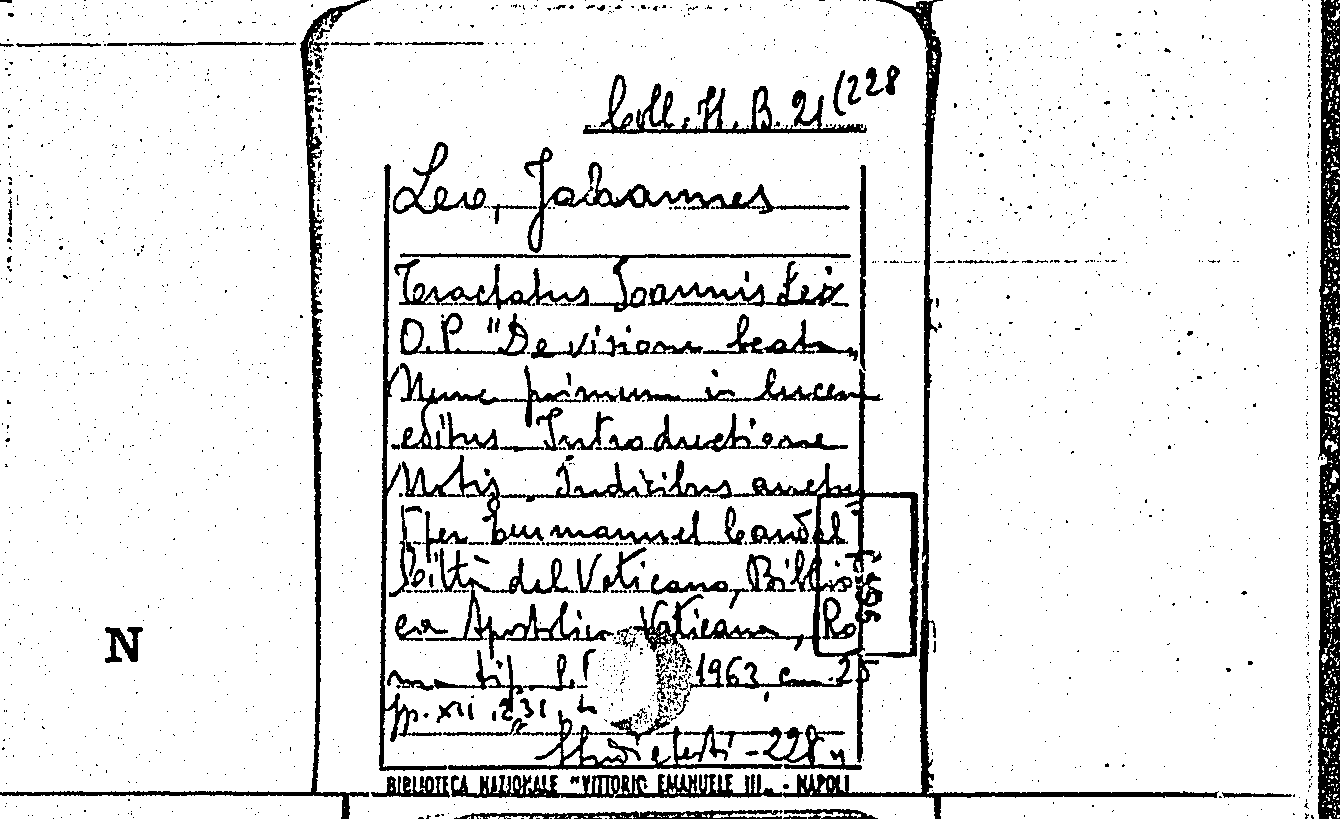 Coll. H. B. 21 (228
Leo, Johannes
Tractatus Joannis Leo
O.P. "De visione beata"
Nunc primum in lucem
editus Introductione
Notis, Indicibus auctu
per Emmanuel Candal
Città del Vaticano, Biblio
eca Apostolica Vaticana, Ro
ma tip. 1963, cm. 25
pp. XII, 231,
Studi e testi - 228"
BIBLIOTECA NAZIONALE "VITTORIO EMANUELE III" - NAPOLI
N